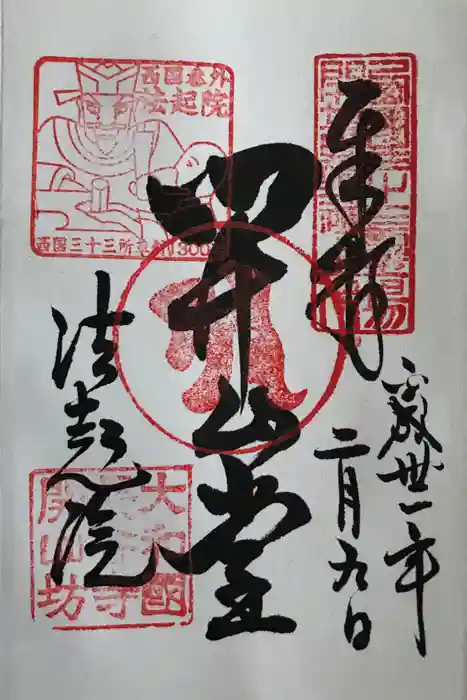 奉拝
平成卅一年
二月九日
開山堂
法起院
西国番外
法起院
西国三十三所草創1300年
大和國
長谷寺
開山坊